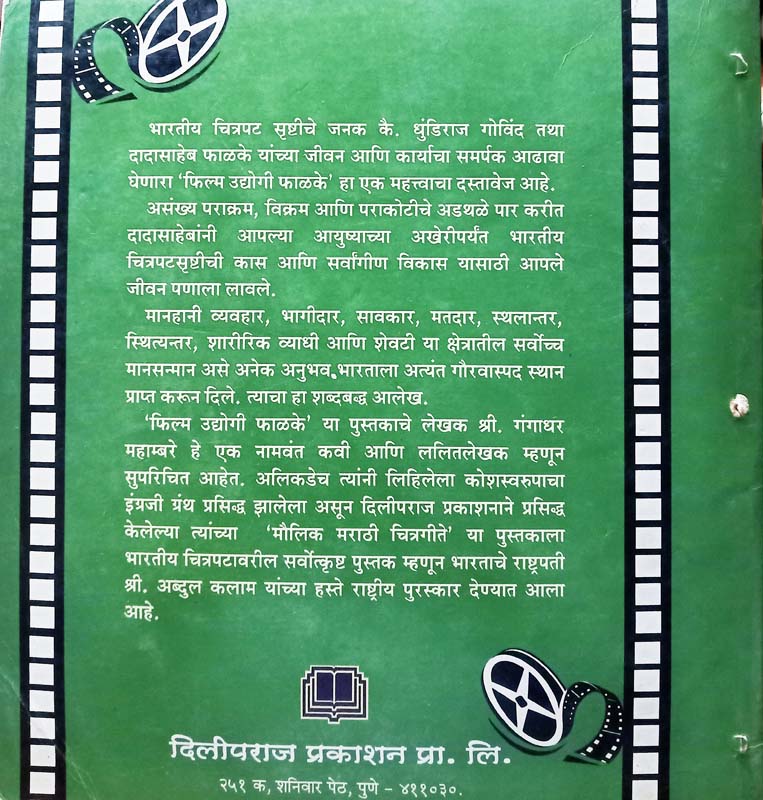 भारतीय चित्रपट सृष्टीचे जनक कै. धुंडिराज गोविंद तथा
दादासाहेब फाळके यांच्या जीवन आणि कार्याचा समर्पक आढावा
घेणारा ‘फिल्म उद्योगी फाळके’ हा एक महत्त्वाचा दस्तावेज आहे.
असंख्य पराक्रम, विक्रम आणि पराकोटीचे अडथळे पार करीत
दादासाहेबांनी आपल्या आयुष्याच्या अखेरीपर्यंत भारतीय
चित्रपटसृष्टीची कास आणि सर्वांगीण विकास यासाठी आपले
जीवन पणाला लावले.
मानहानी व्यवहार, भागीदार, सावकार, मतदार, स्थलान्तर,
स्थित्यन्तर, शारीरिक व्याधी आणि शेवटी या क्षेत्रातील सर्वोच्च
मानसन्मान असे अनेक अनुभव.भारताला अत्यंत गौरवास्पद स्थान
प्राप्त करून दिले. त्याचा हा शब्दबद्ध आलेख.
‘फिल्म उद्योगी फाळके’ या पुस्तकाचे लेखक श्री. गंगाधर
महाम्बरे हे एक नामवंत कवी आणि ललितलेखक म्हणून
सुपरिचित आहेत. अलिकडेच त्यांनी लिहिलेला कोशस्वरुपाचा
इंग्रजी ग्रंथ प्रसिद्ध झालेला असून दिलीपराज प्रकाशनाने प्रसिद्ध
केलेल्या त्यांच्या ‘मौलिक मराठी चित्रगीते’ या पुस्तकाला
भारतीय चित्रपटावरील सर्वोत्कृष्ट पुस्तक म्हणून भारताचे राष्ट्रपती
श्री. अब्दुल कलाम यांच्या हस्ते राष्ट्रीय पुरस्कार देण्यात आला
आहे.
दिलीपराज प्रकाशन प्रा. लि.
२५१ क, शनिवार पेठ, पुणे - ४११०३०.